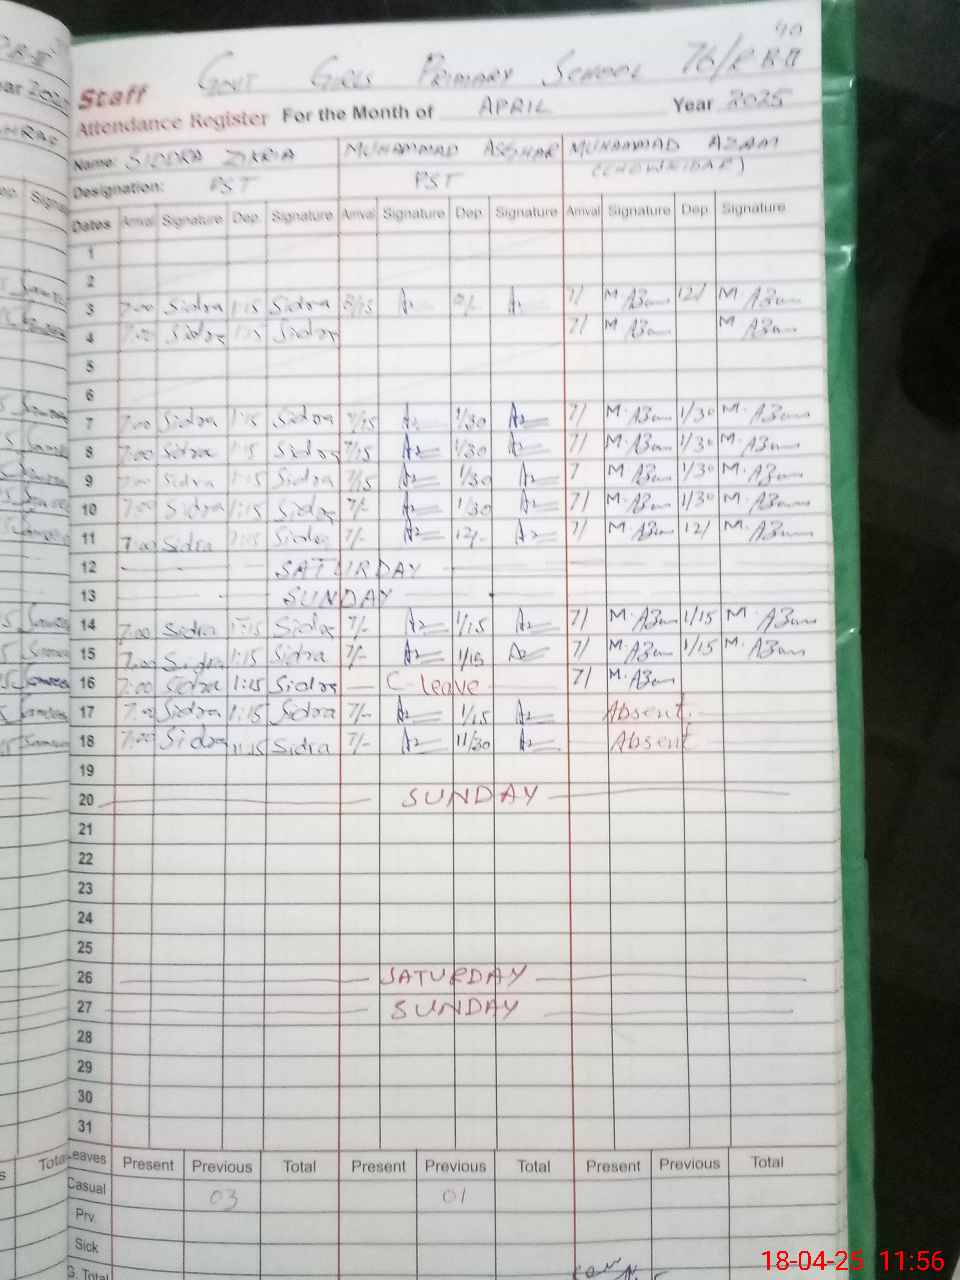 40
Govt Girls Primary School 76/R B II
Staff
Attendance Register For the Month of APRIL Year 2025
Name: SIDDRA ZIKRIA MUHAMMAD ASGHAR MUHAMMAD AZAM
(CHOWKIDAR)
Designation: PST PST
Dates Arrival Signature Dep. Signature Arrival Signature Dep. Signature Arrival Signature Dep. Signature
1
2
3 7:00 Sidra 1:15 Sidra A2 A2 7/ M AZam 12/ M AZam
4 7:00 Sidra 1:15 Sidra 7/ M AZam M AZam
5
6
7 7:00 Sidra 1:15 Sidra 7/15 A2 1/30 A2 7/ M. AZam 1/30 M. AZam
8 7:00 Sidra 1:15 Sidra 7/15 A2 1/30 A2 7/ M. AZam 1/30 M. AZam
9 7:00 Sidra 1:15 Sidra 7/15 A2 1/30 A2 7 M AZam 1/30 M. AZam
10 7:00 Sidra 1:15 Sidra 7/- A2 1/30 A2 7/ M. AZam 1/30 M. AZam
11 7:00 Sidra 1:15 Sidra 7/- A2 12/- A2 7/ M. AZam 12/ M. AZam
12 SATURDAY
13 SUNDAY
14 7:00 Sidra 1:15 Sidra 7/- A2 1/15 A2 7/ M. AZam 1/15 M. AZam
15 7:00 Sidra 1:15 Sidra 7/- A2 1/15 A2 7/ M. AZam 1/15 M. AZam
16 7:00 Sidra 1:15 Sidra C-leave 7/ M. AZam
17 7:00 Sidra 1:15 Sidra 7/- A2 1/15 A2 Absent.
18 7:00 Sidra 11:15 Sidra 7/- A2 11/30 A2 Absent
19
20 SUNDAY
21
22
23
24
25
26 SATURDAY
27 SUNDAY
28
29
30
31
Leaves Present Previous Total Present Previous Total Present Previous Total
Casual 03 01
Prv.
Sick
G. Total
18-04-25 11:56